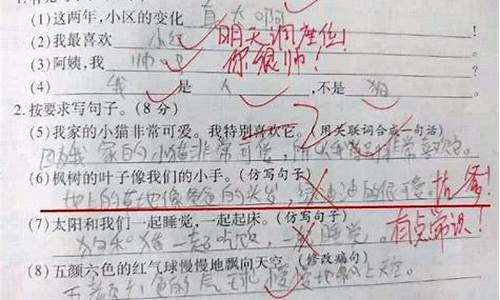 (1)这两年,小区的变化 真大啊
(2)我最喜欢 小红 明天调座位!
(3)阿姨,我 帅吧 你很帅!
(4) 我 是 人 ,不是 狗
2. 按要求写句子。(8 分)
(5)我家的小猫非常可爱。我特别喜欢它。(用关联词合成一句话)
因为我家的小猫非常可爱,所以我 非常喜欢它。
(6)枫树的叶子像我们的小手。(仿写句子)
地上的草地像爸爸的头发,绿油油的很可爱。找爹!
(7)太阳和我们一起睡觉,一起起床。(仿写句子)
狗和猪一起吃饭,一起睡觉。 有点常识!
(8)五颜六色的红气球慢慢地飘向天空。(修改病句)
五颜六色的气球慢慢地飘上天空。